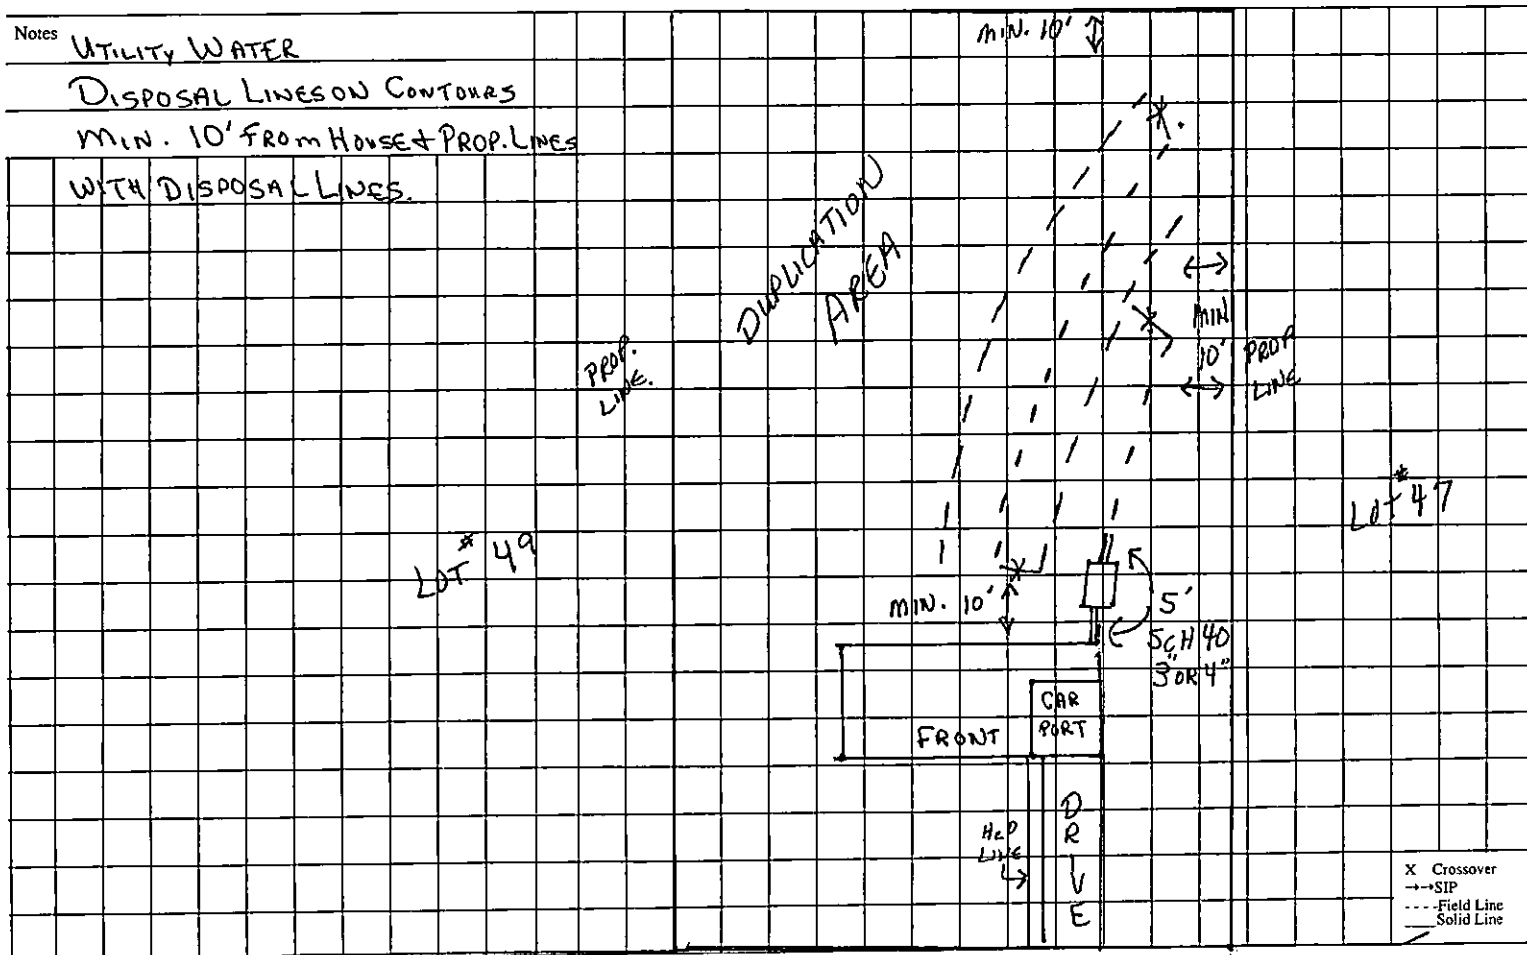 Notes
UTILITY WATER
DISPOSAL LINES ON CONTOURS
MIN. 10' FROM HOUSE & PROP. LINES
WITH DISPOSAL LINES.
MIN. 10'
DUPLICATION
AREA
PROP.
LINE.
MIN
10'
PROP
LINE
LOT # 49
LOT # 47
MIN. 10'
5'
SCH 40
3" OR 4"
CAR
PORT
FRONT
H2O
LINE
DRIVE
X Crossover
→→SIP
----Field Line
___Solid Line